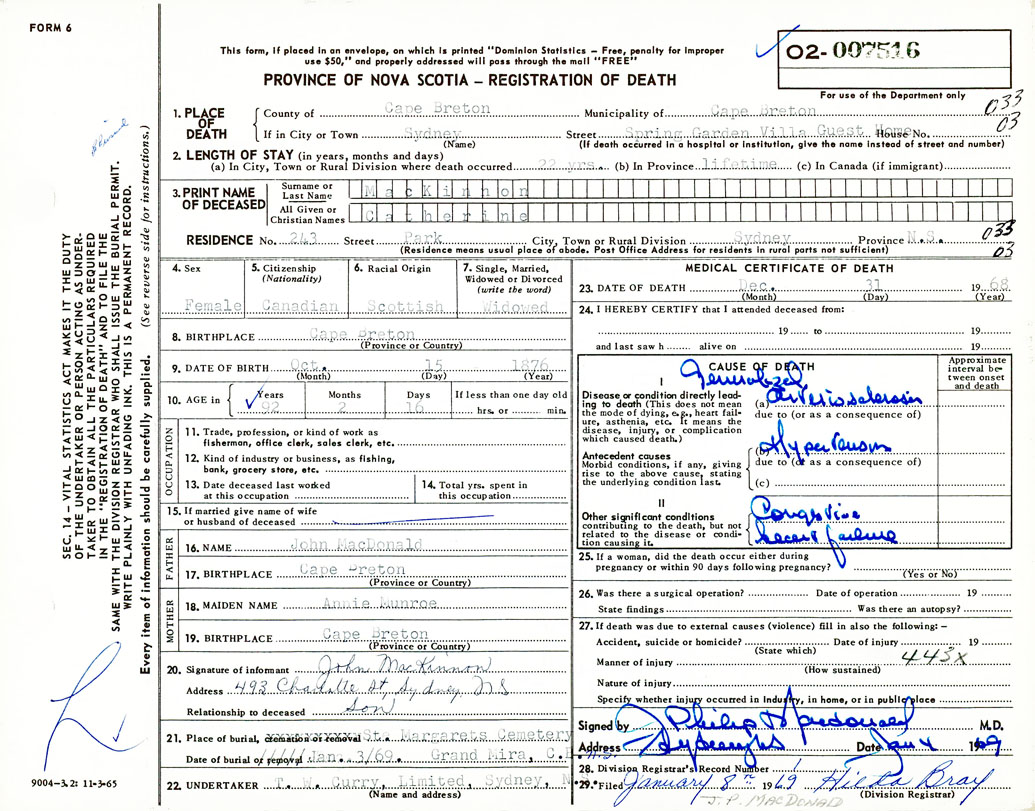 FORM 6
This form, if placed in an envelope, on which is printed "Dominion Statistics – Free, penalty for improper
use $50," and properly addressed will pass through the mail "FREE"
PROVINCE OF NOVA SCOTIA – REGISTRATION OF DEATH
02-007516
For use of the Department only
033
03
1. PLACE OF DEATH
County of Cape Breton Municipality of Cape Breton
If in City or Town Sydney Street Spring Garden Villa Guest Home House No.
(Name) (If death occurred in a hospital or institution, give the name instead of street and number)
2. LENGTH OF STAY (in years, months and days)
(a) In City, Town or Rural Division where death occurred 22 yrs. (b) In Province lifetime (c) In Canada (if immigrant)
3. PRINT NAME OF DECEASED
Surname or Last Name MacKinnon
All Given or Christian Names Catherine
RESIDENCE No. 243 Street Park City, Town or Rural Division Sydney Province N.S.
(Residence means usual place of abode. Post Office Address for residents in rural parts not sufficient)
033
03
4. Sex
Female
5. Citizenship
(Nationality)
Canadian
6. Racial Origin
Scottish
7. Single, Married,
Widowed or Divorced
(write the word)
Widowed
8. BIRTHPLACE Cape Breton
(Province or Country)
9. DATE OF BIRTH Oct. 15 1876
(Month) (Day) (Year)
10. AGE in Years Months Days If less than one day old
92 2 16 hrs. or min.
OCCUPATION
11. Trade, profession, or kind of work as
fisherman, office clerk, sales clerk, etc.
12. Kind of industry or business, as fishing,
bank, grocery store, etc.
13. Date deceased last worked
at this occupation
14. Total yrs. spent in
this occupation
15. If married give name of wife
or husband of deceased
FATHER
16. NAME John MacDonald
17. BIRTHPLACE Cape Breton
(Province or Country)
MOTHER
18. MAIDEN NAME Annie Munroe
19. BIRTHPLACE Cape Breton
(Province or Country)
20. Signature of informant John MacKinnon
Address 493 Charlotte St, Sydney, NS
Relationship to deceased Son
21. Place of burial, cremation or removal St. Margarets Cemetery
Date of burial or removal Jan. 3/69. Grand Mira, C.B.
22. UNDERTAKER T. W. Curry, Limited, Sydney, N
(Name and address)
MEDICAL CERTIFICATE OF DEATH
23. DATE OF DEATH Dec. 31 1968
(Month) (Day) (Year)
24. I HEREBY CERTIFY that I attended deceased from:
19 to 19
and last saw h alive on 19
CAUSE OF DEATH
Approximate
interval be-
tween onset
and death
I
Generalized
Disease or condition directly lead-
ing to death (This does not mean
the mode of dying, e.g., heart fail-
ure, asthenia, etc. It means the
disease, injury, or complication
which caused death.)
(a) arteriosclerosis
due to (or as a consequence of)
Antecedent causes
Morbid conditions, if any, giving
rise to the above cause, stating
the underlying condition last.
(b) Hypertension
due to (or as a consequence of)
(c)
II
Other significant conditions
contributing to the death, but not
related to the disease or condi-
tion causing it.
Congestive
heart failure
25. If a woman, did the death occur either during
pregnancy or within 90 days following pregnancy?
(Yes or No)
26. Was there a surgical operation? Date of operation 19
State findings Was there an autopsy?
27. If death was due to external causes (violence) fill in also the following: –
Accident, suicide or homicide? Date of injury 19
(State which)
443X
Manner of injury
(How sustained)
Nature of injury
Specify whether injury occurred in Industry, in home, or in public place
Signed by Philip Macdonald M.D.
Address Date Jan 4 1969
28. Division Registrar's Record Number 1
29. Filed January 8th 1969 Hilda Bray
(Division Registrar)
J. P. MACDONALD
SEC. 14 – VITAL STATISTICS ACT MAKES IT THE DUTY
OF THE UNDERTAKER OR PERSON ACTING AS UNDER-
TAKER TO OBTAIN ALL THE PARTICULARS REQUIRED
IN THE "REGISTRATION OF DEATH" AND TO FILE THE
SAME WITH THE DIVISION REGISTRAR WHO SHALL ISSUE THE BURIAL PERMIT.
WRITE PLAINLY WITH UNFADING INK. THIS IS A PERMANENT RECORD.
Every item of information should be carefully supplied. (See reverse side for instructions.)
9004-3.2: 11-3-65